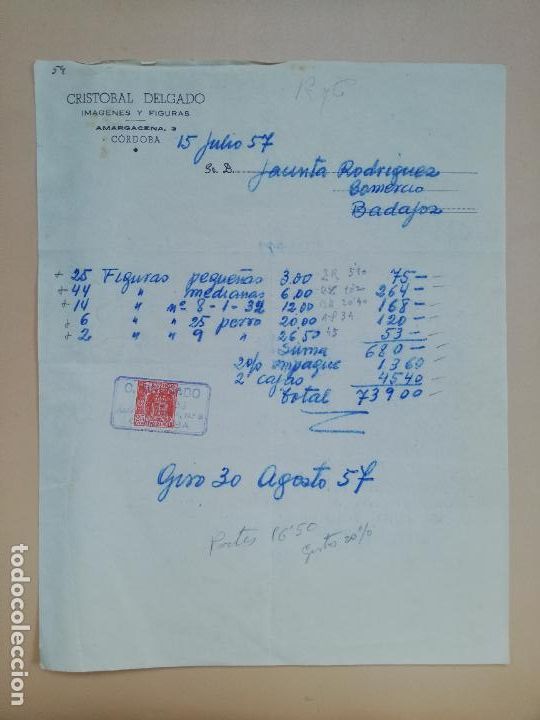 54
CRISTOBAL DELGADO
IMAGENES Y FIGURAS
AMARGACENA, 3
CÓRDOBA
15 Julio 57
Sr. D. Jacinta Rodriguez
Comercio
Badajoz
+ 25 Figuras pequeñas 3.00 75 —
+ 44 " medianas 6.00 264 —
+ 14 " nº 8-1-32 12.00 168 —
+ 6 " 25 perro 20.00 120 —
+ 2 " 9 " 26.50 53 —
Suma 680 —
2 o/o empaque 13 60
2 cajas 45 40
total 739 00
Giro 30 Agosto 57
Portes 16'50
Gastos 20%
todocoleccion